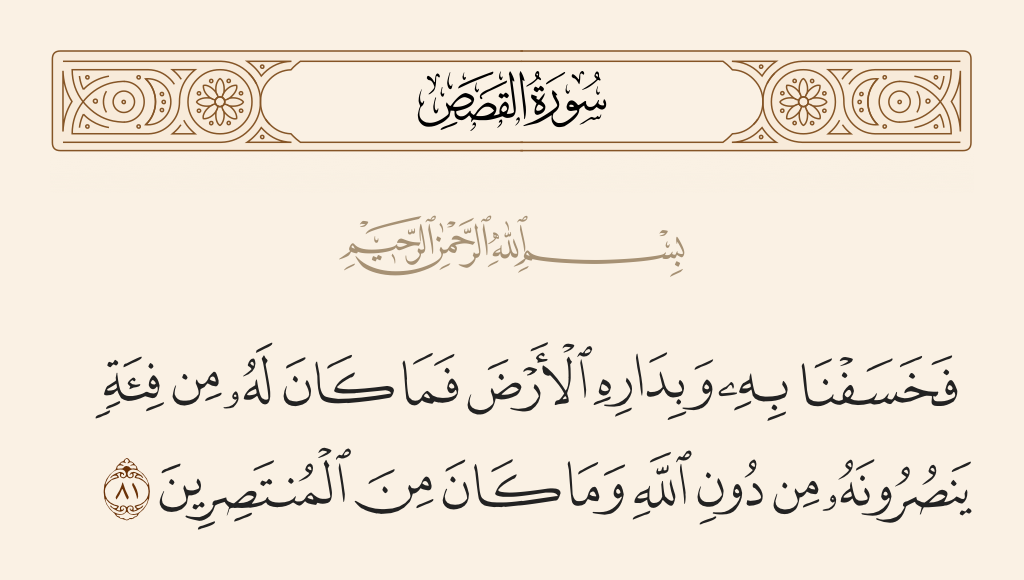 سُورَةُ القَصَصِ
بِسْمِ ٱللَّهِ ٱلرَّحْمَٰنِ ٱلرَّحِيمِ
فَخَسَفْنَا بِهِۦ وَبِدَارِهِ ٱلْأَرْضَ فَمَا كَانَ لَهُۥ مِن فِئَةٍ
يَنصُرُونَهُۥ مِن دُونِ ٱللَّهِ وَمَا كَانَ مِنَ ٱلْمُنتَصِرِينَ ٨١